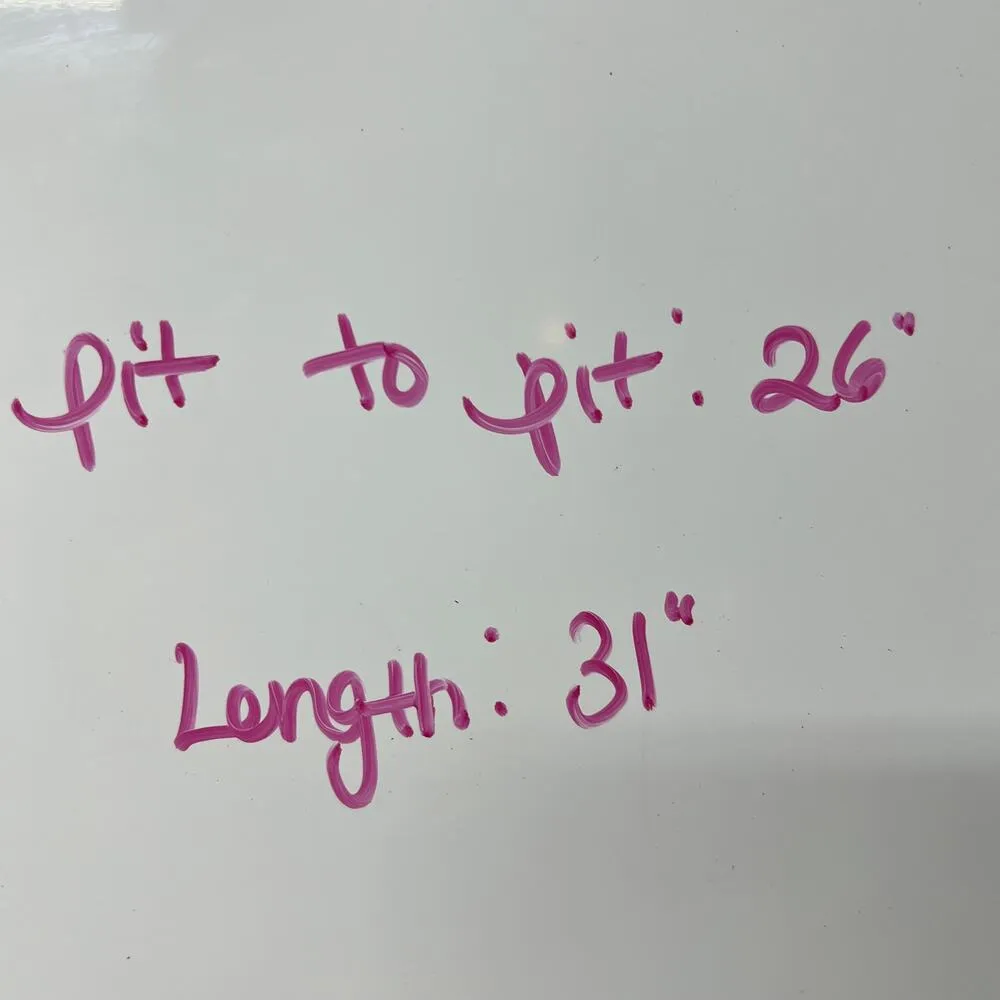 pit to pit: 26"
Length: 31"